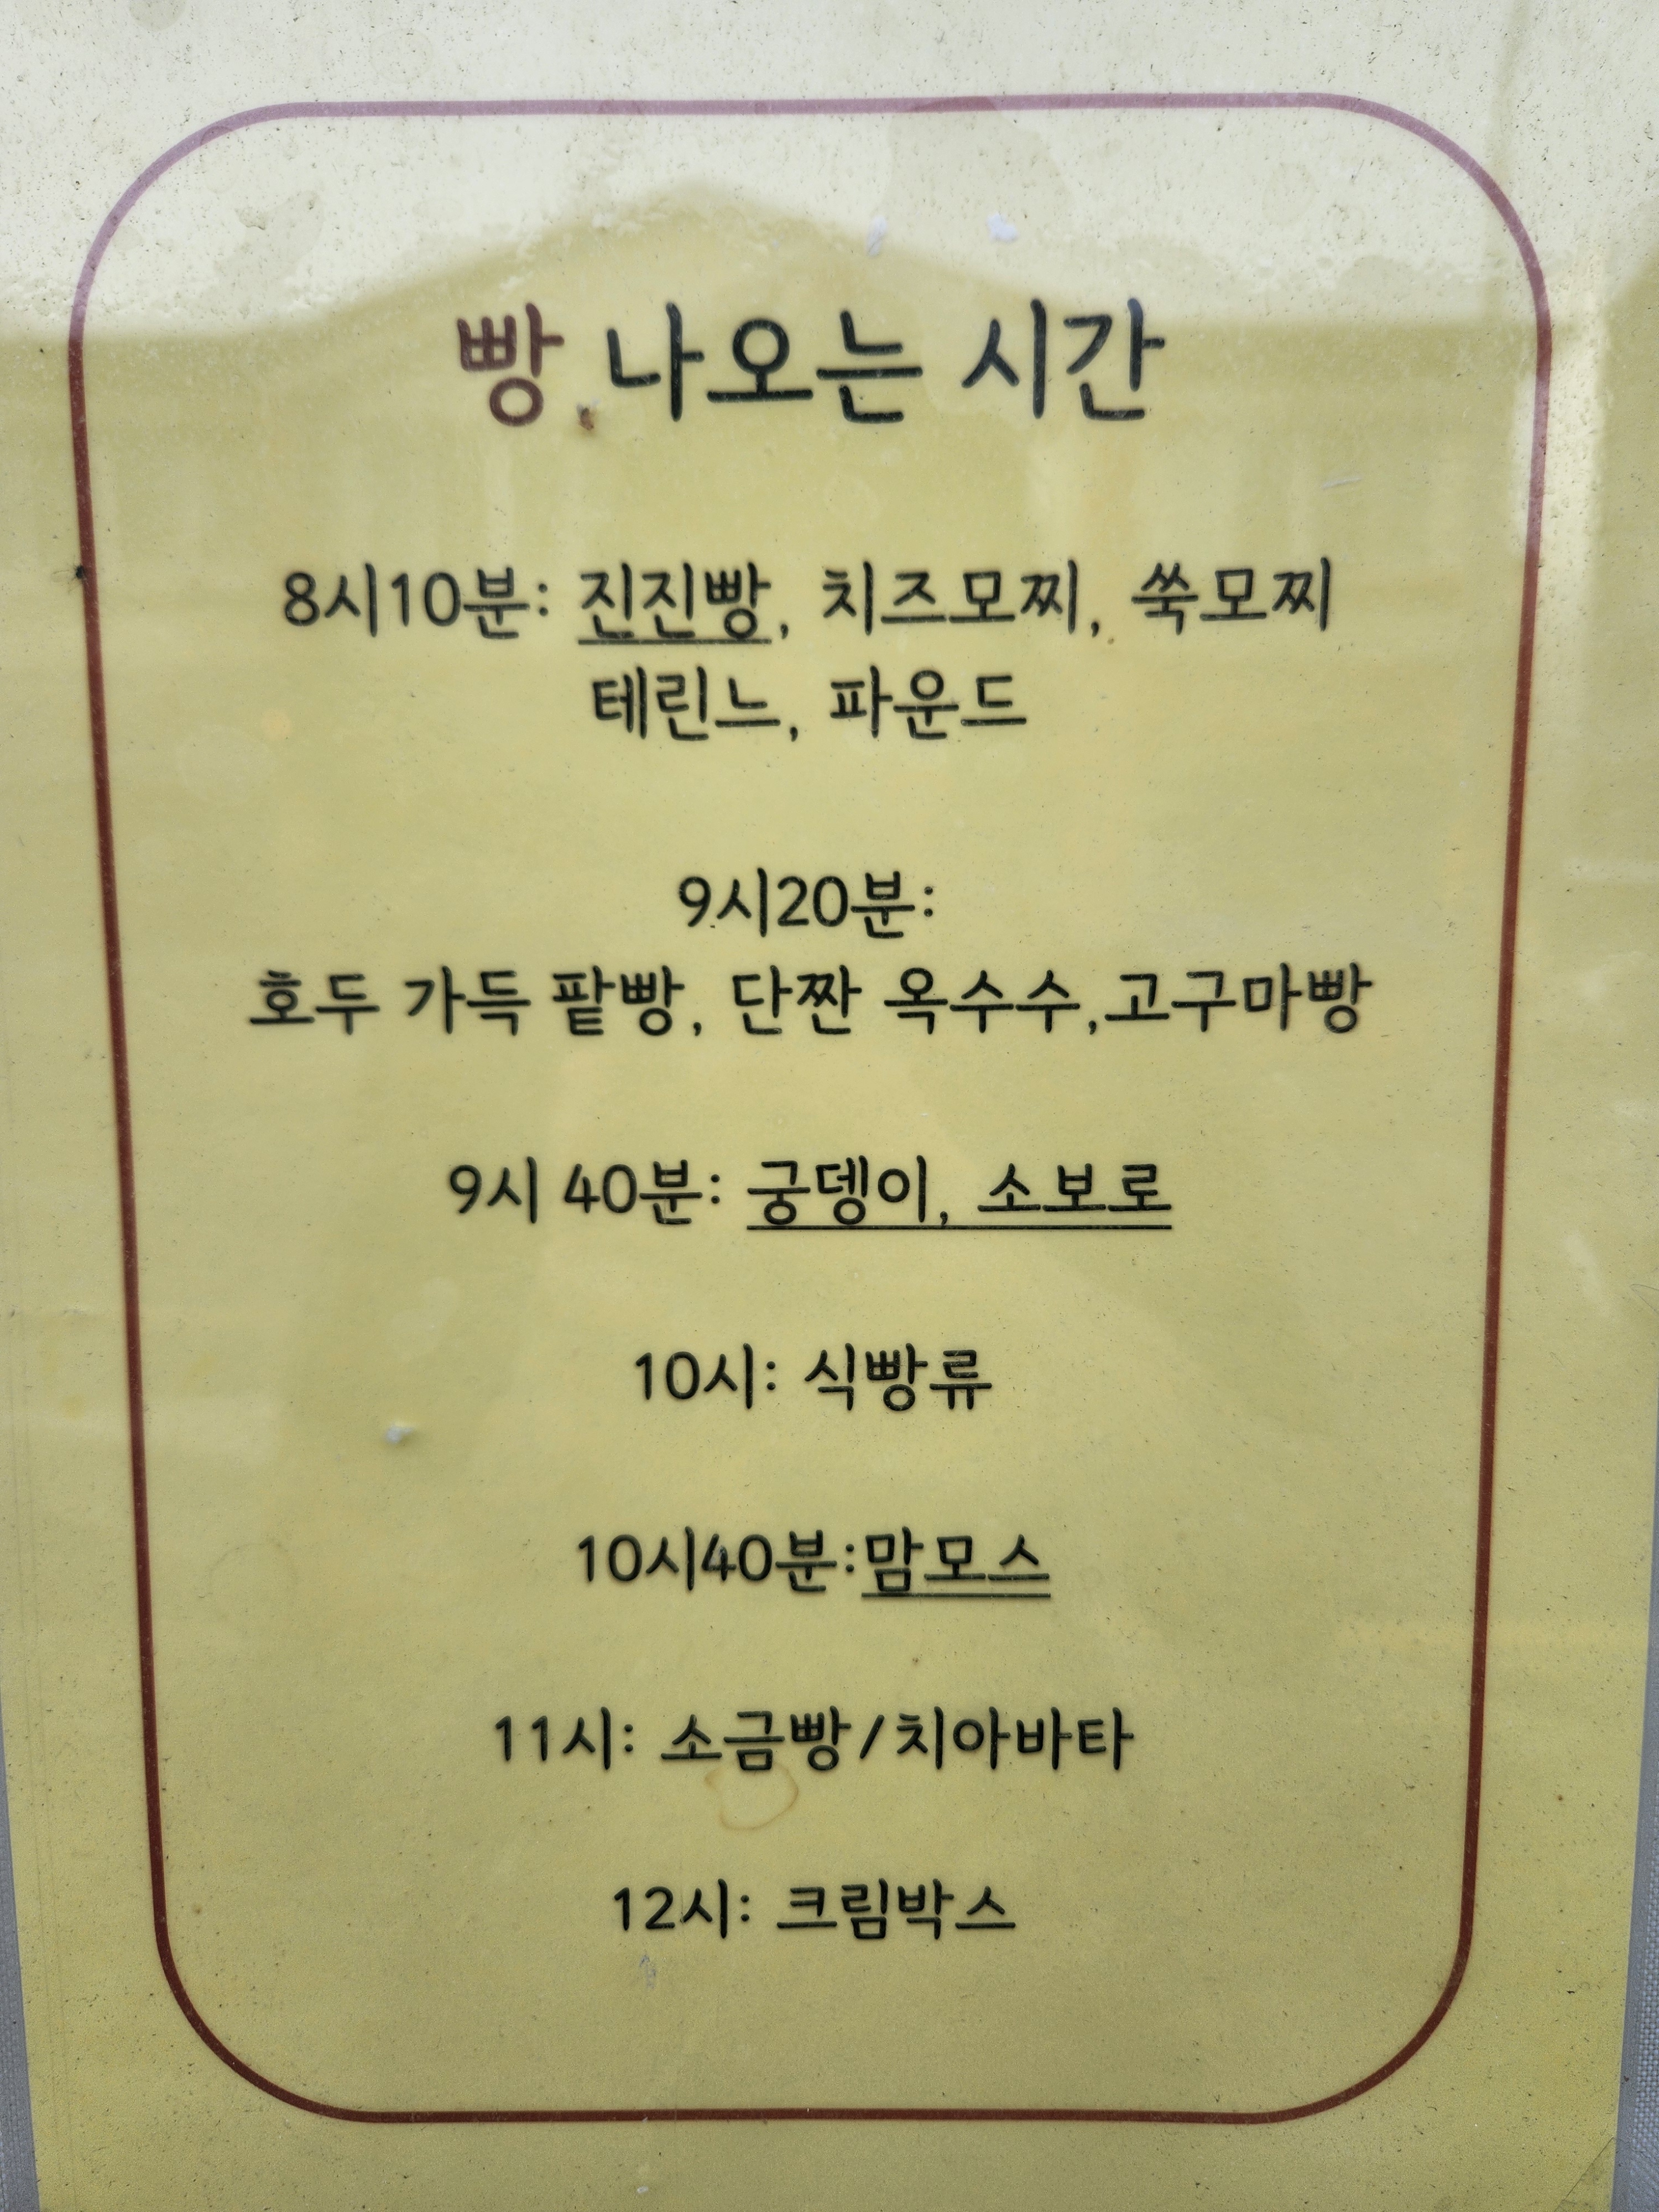 빵 나오는 시간
8시10분: 진진빵, 치즈모찌, 쑥모찌
테린느, 파운드
9시20분:
호두 가득 팥빵, 단짠 옥수수,고구마빵
9시 40분: 궁뎅이, 소보로
10시: 식빵류
10시40분:맘모스
11시: 소금빵/치아바타
12시: 크림박스